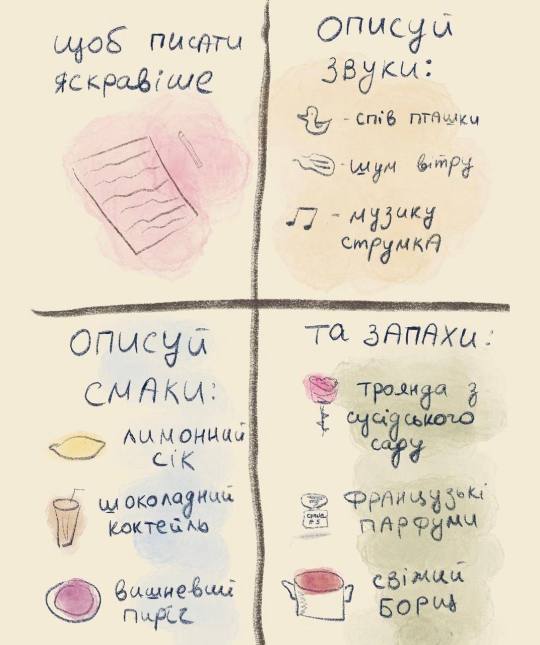 щоб писати
яскравіше
Описуй
звуки:
- спів пташки
- шум вітру
- музику
струмка
Описуй
смаки:
лимонний
сік
шоколадний
коктейль
вишневий
пиріг
та запахи:
троянда з
сусідського
саду
французькі
парфуми
свіжий
борщ